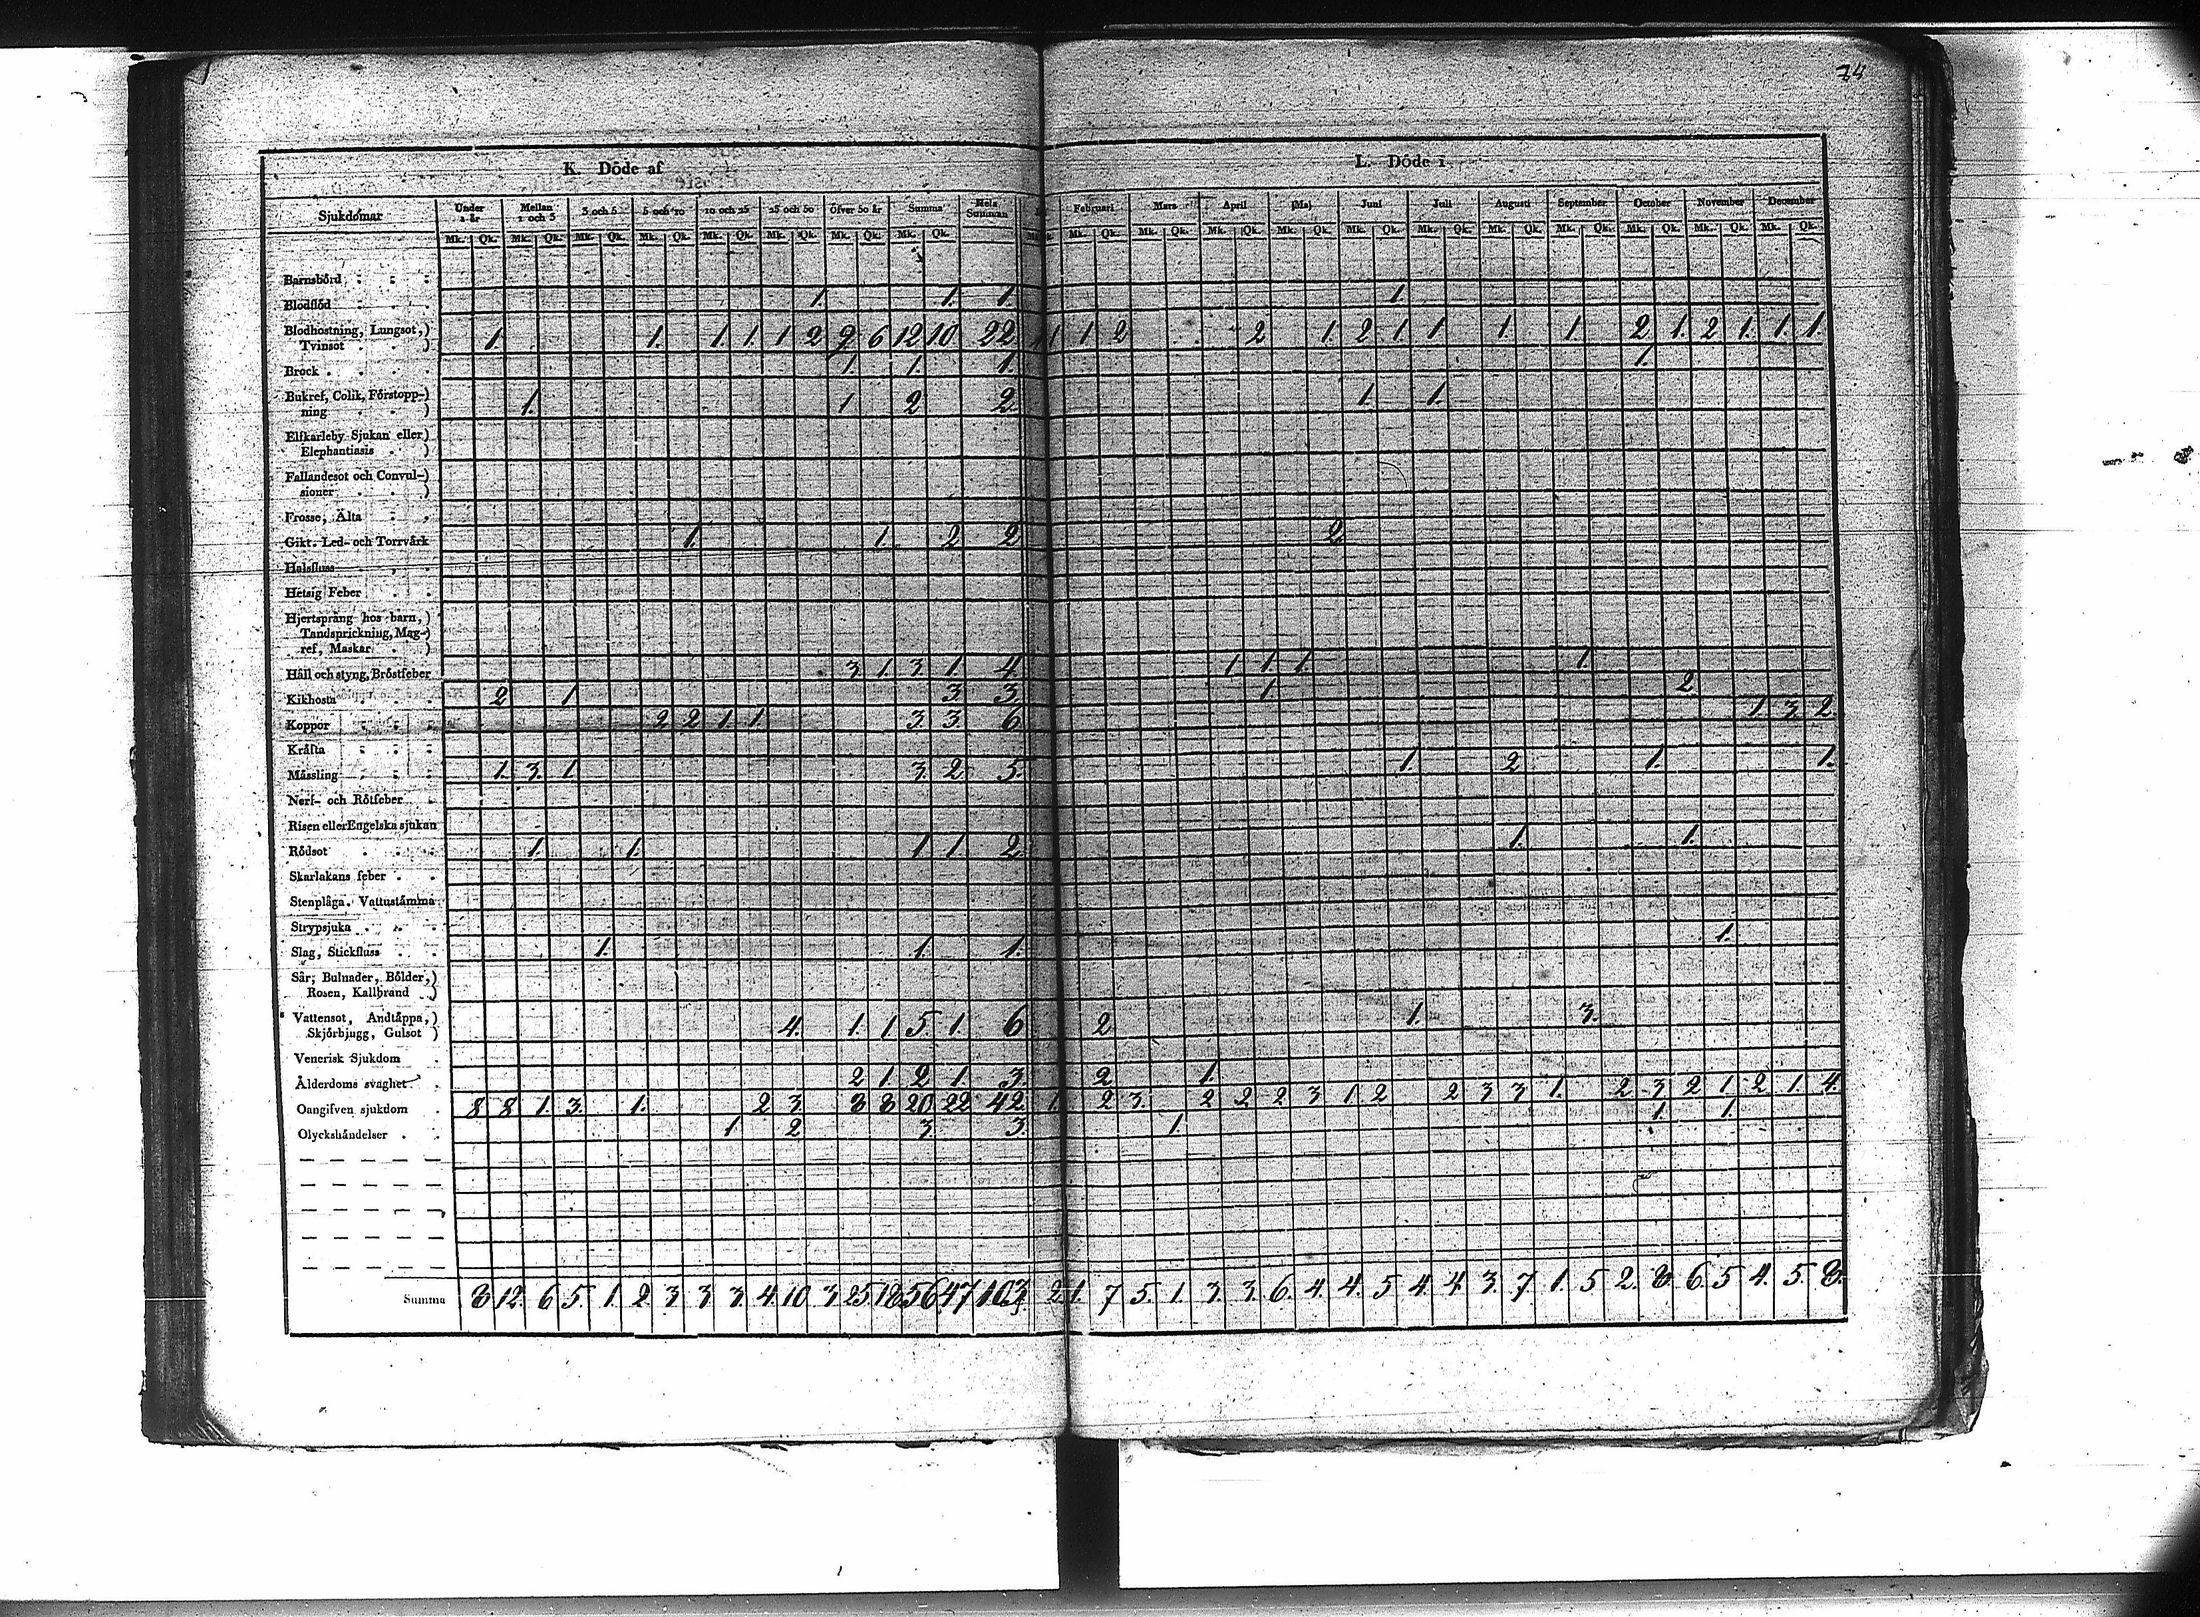 74
K. Döde af
L. Döde i
Sjukdomar Under 1 år Mellan 1 och 3 3 och 5 5 och 10 10 och 25 25 och 50 öfver 50 år Summa Hela Summan Februari Mars April Maj Juni Juli Augusti September October November December
Mk. Qk. Mk. Qk. Mk. Qk. Mk. Qk. Mk. Qk. Mk. Qk. Mk. Qk. Mk. Qk. Mk. Qk. Mk. Qk. Mk. Qk. Mk. Qk. Mk. Qk. Mk. Qk. Mk. Qk. Mk. Qk. Mk. Qk. Mk. Qk. Mk. Qk. Mk. Qk.
Barnsbörd
Blodflöd 1. 1. 1. 1.
Blodhostning, Lungsot,)
Tvinsot ) 1. 1. 1. 1. 1 2 9 6 12 10 22 1 1 1 2 2 1. 2 1 1 1. 1 2 1. 2 1. 1. 1.
Brock 1 1. 1. 1.
Bukref, Colik, Förstopp-)
ning ) 1. 1 2 2 1. 1.
Elfkarleby Sjukan eller)
Elephantiasis )
Fallandesot och Convul-)
sioner )
Frosse, Älta
Gikt. Led- och Torrvärk 1 1. 2 2 2
Halsfluss
Hetsig Feber
Hjertsprång hos barn, )
Tandsprickning, Mag-)
ref, Maskar )
Håll och styng, Bröstfeber 3 1. 3 1. 4. 1 1 1 1.
Kikhosta 2 1 3 3. 1. 2
Koppor 2 2 1 1 3. 3 6 1. 3 2.
Kräfta
Mässling 1. 3. 1 3. 2 5. 1. 2 1. 1.
Nerf- och Rötfeber
Risen eller Engelska sjukan
Rödsot 1. 1. 1 1. 2 1. 1.
Skarlakans feber
Stenplåga. Vattustämma
Strypsjuka
Slag, Stickfluss 1. 1. 1. 1.
Sår, Bulnader, Bölder,)
Rosen, Kallbrand )
Vattensot, Andtäppa,)
Skjörbjugg, Gulsot ) 4. 1. 1 5 1. 6 2 1. 3.
Venerisk Sjukdom
Ålderdoms svaghet 2 1. 2 1. 3. 2 1.
Oangifven sjukdom 8 8 1. 3. 1. 2 3. 8 8 20 22 42 1. 2 3. 2 2 2 3 1 2 2 3 3 1. 2 3 2 1 2 1. 4.
Olyckshändelser 1 2 3. 3. 1. 1. 1.
Summa 8 12. 6 5. 1. 2 3 3 3. 4. 10 3 25 18 56 47 103 2 1. 7 5. 1. 3. 3. 6. 4. 4. 5 4. 4. 3. 7. 1. 5 2. 8. 6. 5 4. 5. 8.